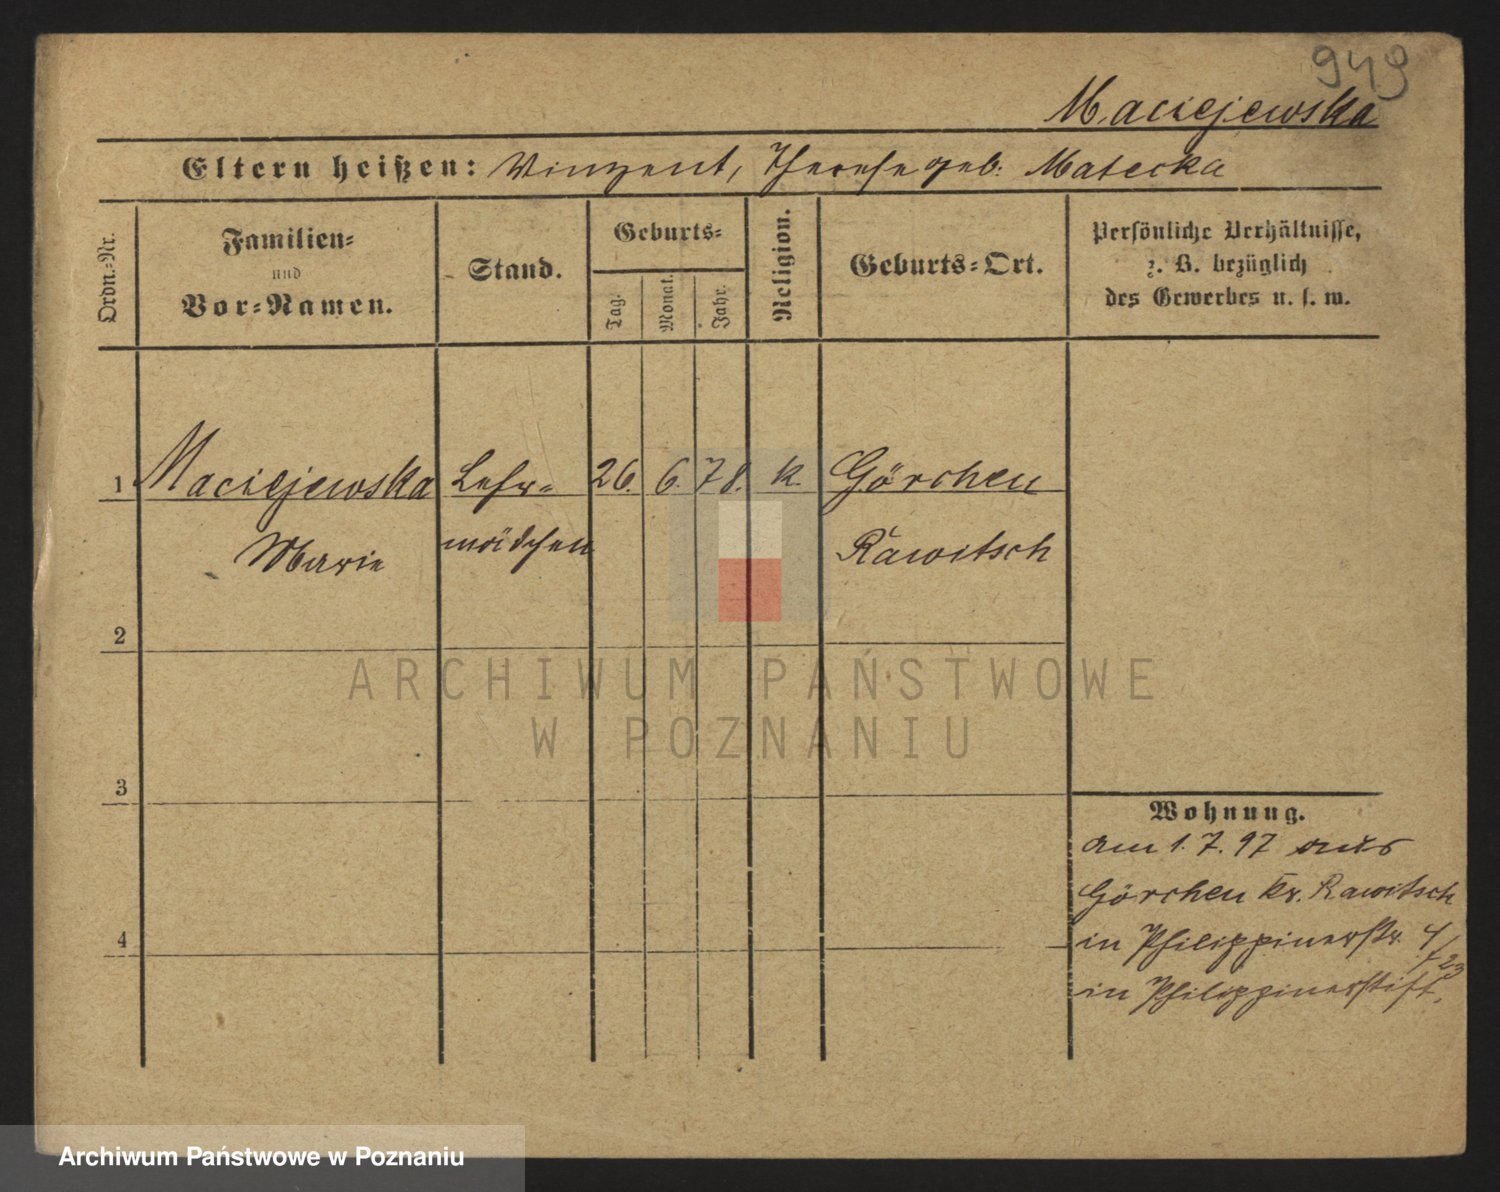 949
Maciejewska
Eltern heißen: Vinzent, Therese geb. Matecka
Ordn.-Nr.
Familien-
und
Vor-Namen.
Stand.
Geburts-
Tag.
Monat.
Jahr.
Religion.
Geburts-Ort.
Persönliche Verhältnisse,
z. B. bezüglich
des Gewerbes u. s. w.
1 Maciejewska Lehr- 26. 6. 78. k. Görchen
Marie mädchen Rawitsch
2
ARCHIWUM PAŃSTWOWE
W POZNANIU
3
Wohnung.
am 1. 7. 97 aus
Görchen Kr. Rawitsch
in Philippinerstr. 4/23
in Philippinerstift.
4
Archiwum Państwowe w Poznaniu